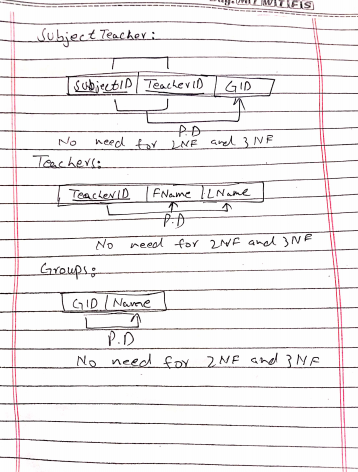 SubjectTeacher:
SubjectID TeacherID GID
P.D
No need for 2NF and 3NF
Teachers:
TeacherID FName LName
P.D
No need for 2NF and 3NF
Groups:
GID Name
P.D
No need for 2NF and 3NF